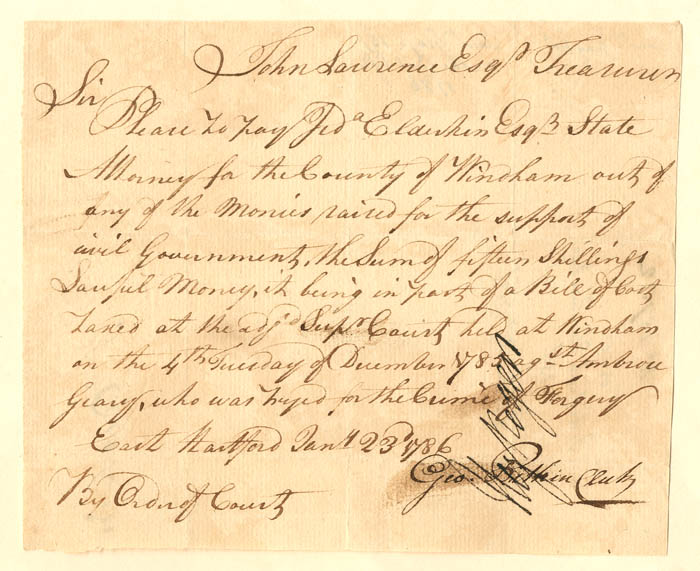 John Lawrence Esqr. Treasurer
Sir
Please to pay Jeda Elderkin Esqr. State
Attorney for the County of Windham out of
any of the Monies raised for the support of
civil Government, the Sum of fifteen Shillings
Lawful Money, it being in part of a Bill of Cost
taxed at the adjd. Supr. Court held at Windham
on the 4th Tuesday of December 1785 agst. Ambrose
Geary, who was tryed for the Crime of Forgery
East Hartford Jany 23d 1786
Geo. Pitkin Clerk
By Order of Court